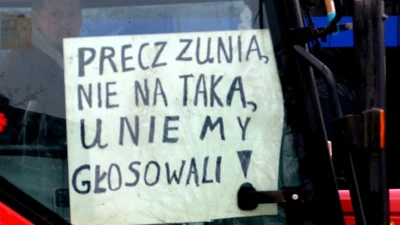 PRECZ ZUNIĄ,
NIE NA TAKĄ,
UNIE MY
GŁOSOWALI!